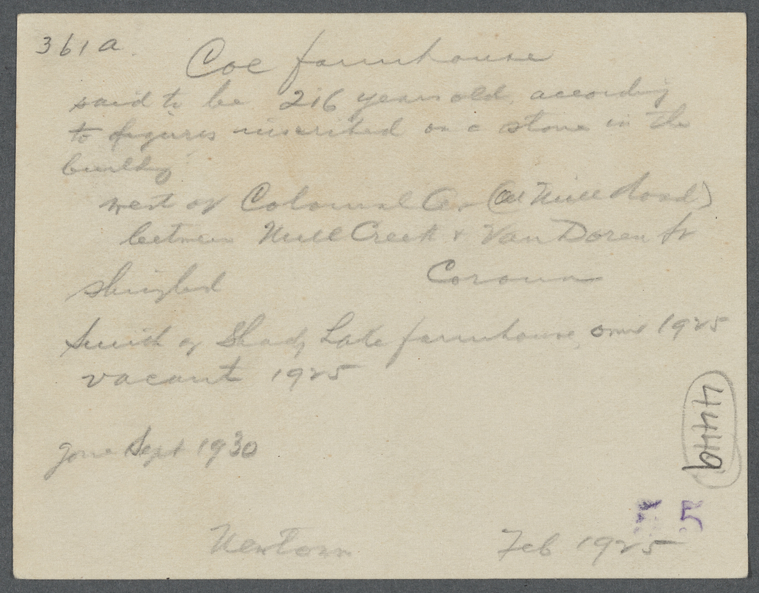 361a.
Coe farmhouse
said to be 216 years old, according
to figures inscribed on a stone in the
building
west of Colonial Av (Old Mill Road)
between Mill Creek & Van Doren St
shingled Corona
South of Shady Lake farmhouse, 1925
vacant 1925
4449
gone Sept 1930
5
Newtown Feb 1925